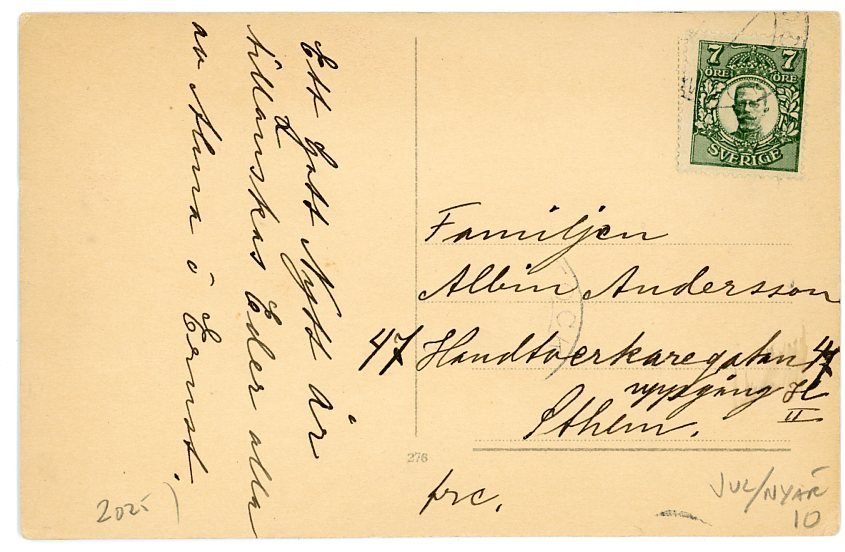 Ett Gott Nytt år
tillönskas Eder alla
av Alma o Ernst.
7 7
ÖRE ÖRE
SVERIGE
Familjen
Albin Andersson
47 Handtverkaregatan 47
uppgång H
II
Sthlm.
276
frc.
2025
JUL/NYÅR
10